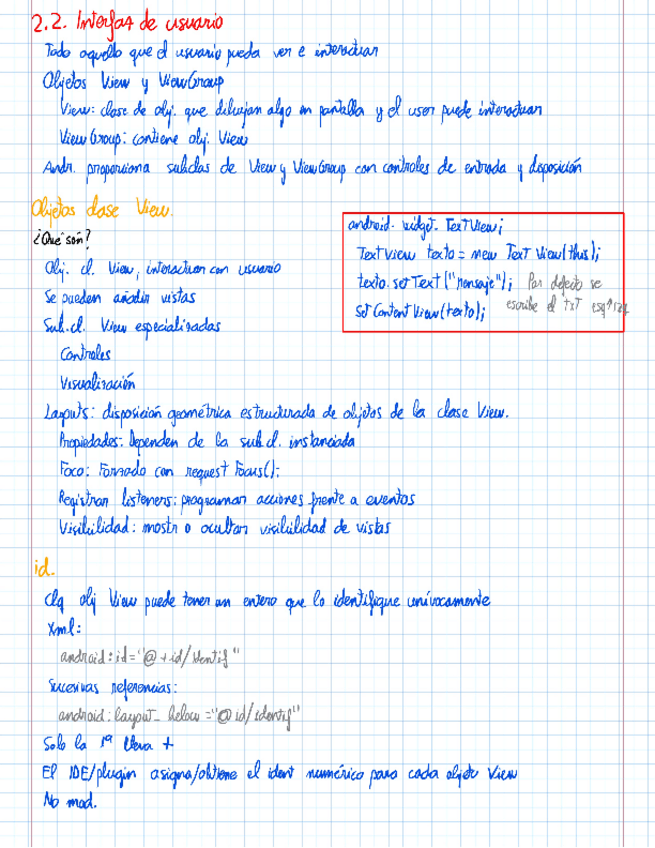 2.2. Interfaz de usuario
Todo aquello que el usuario pueda ver e interactuar
Objetos View y ViewGroup
View: clase de obj. que dibujan algo en pantalla y el user puede interactuar
View Group: contiene obj. View
Andr. proporciona subclas de View y ViewGroup con controles de entrada y disposición
Objetos clase View.
¿Qué son?
Obj. cl. View, interactuan con usuario
Se pueden anidar vistas
Sub.cl. View especializadas
Controles
Visualización
android. widget. TextView;
TextView texto = new TextView(this);
texto.setText("mensaje"); Por defecto se
escribe el txt esq↑izq
setContentView(texto);
Layouts: disposición geométrica estructurada de objetos de la clase View.
Propiedades: Dependen de la sub.cl. instanciada
Foco: Forzado con request Focus();
Registrar listeners: programar acciones frente a eventos
Visibilidad: mostr o ocultar visibilidad de vistas
id.
Clq obj View puede tener un entero que lo identifique unívocamente
Xml:
android:id="@+id/Identif"
Sucesivas referencias:
android:layout_below="@id/identif"
Solo la 1ª lleva +
El IDE/plugin asigna/obtiene el ident numérico para cada objeto View
No mod.